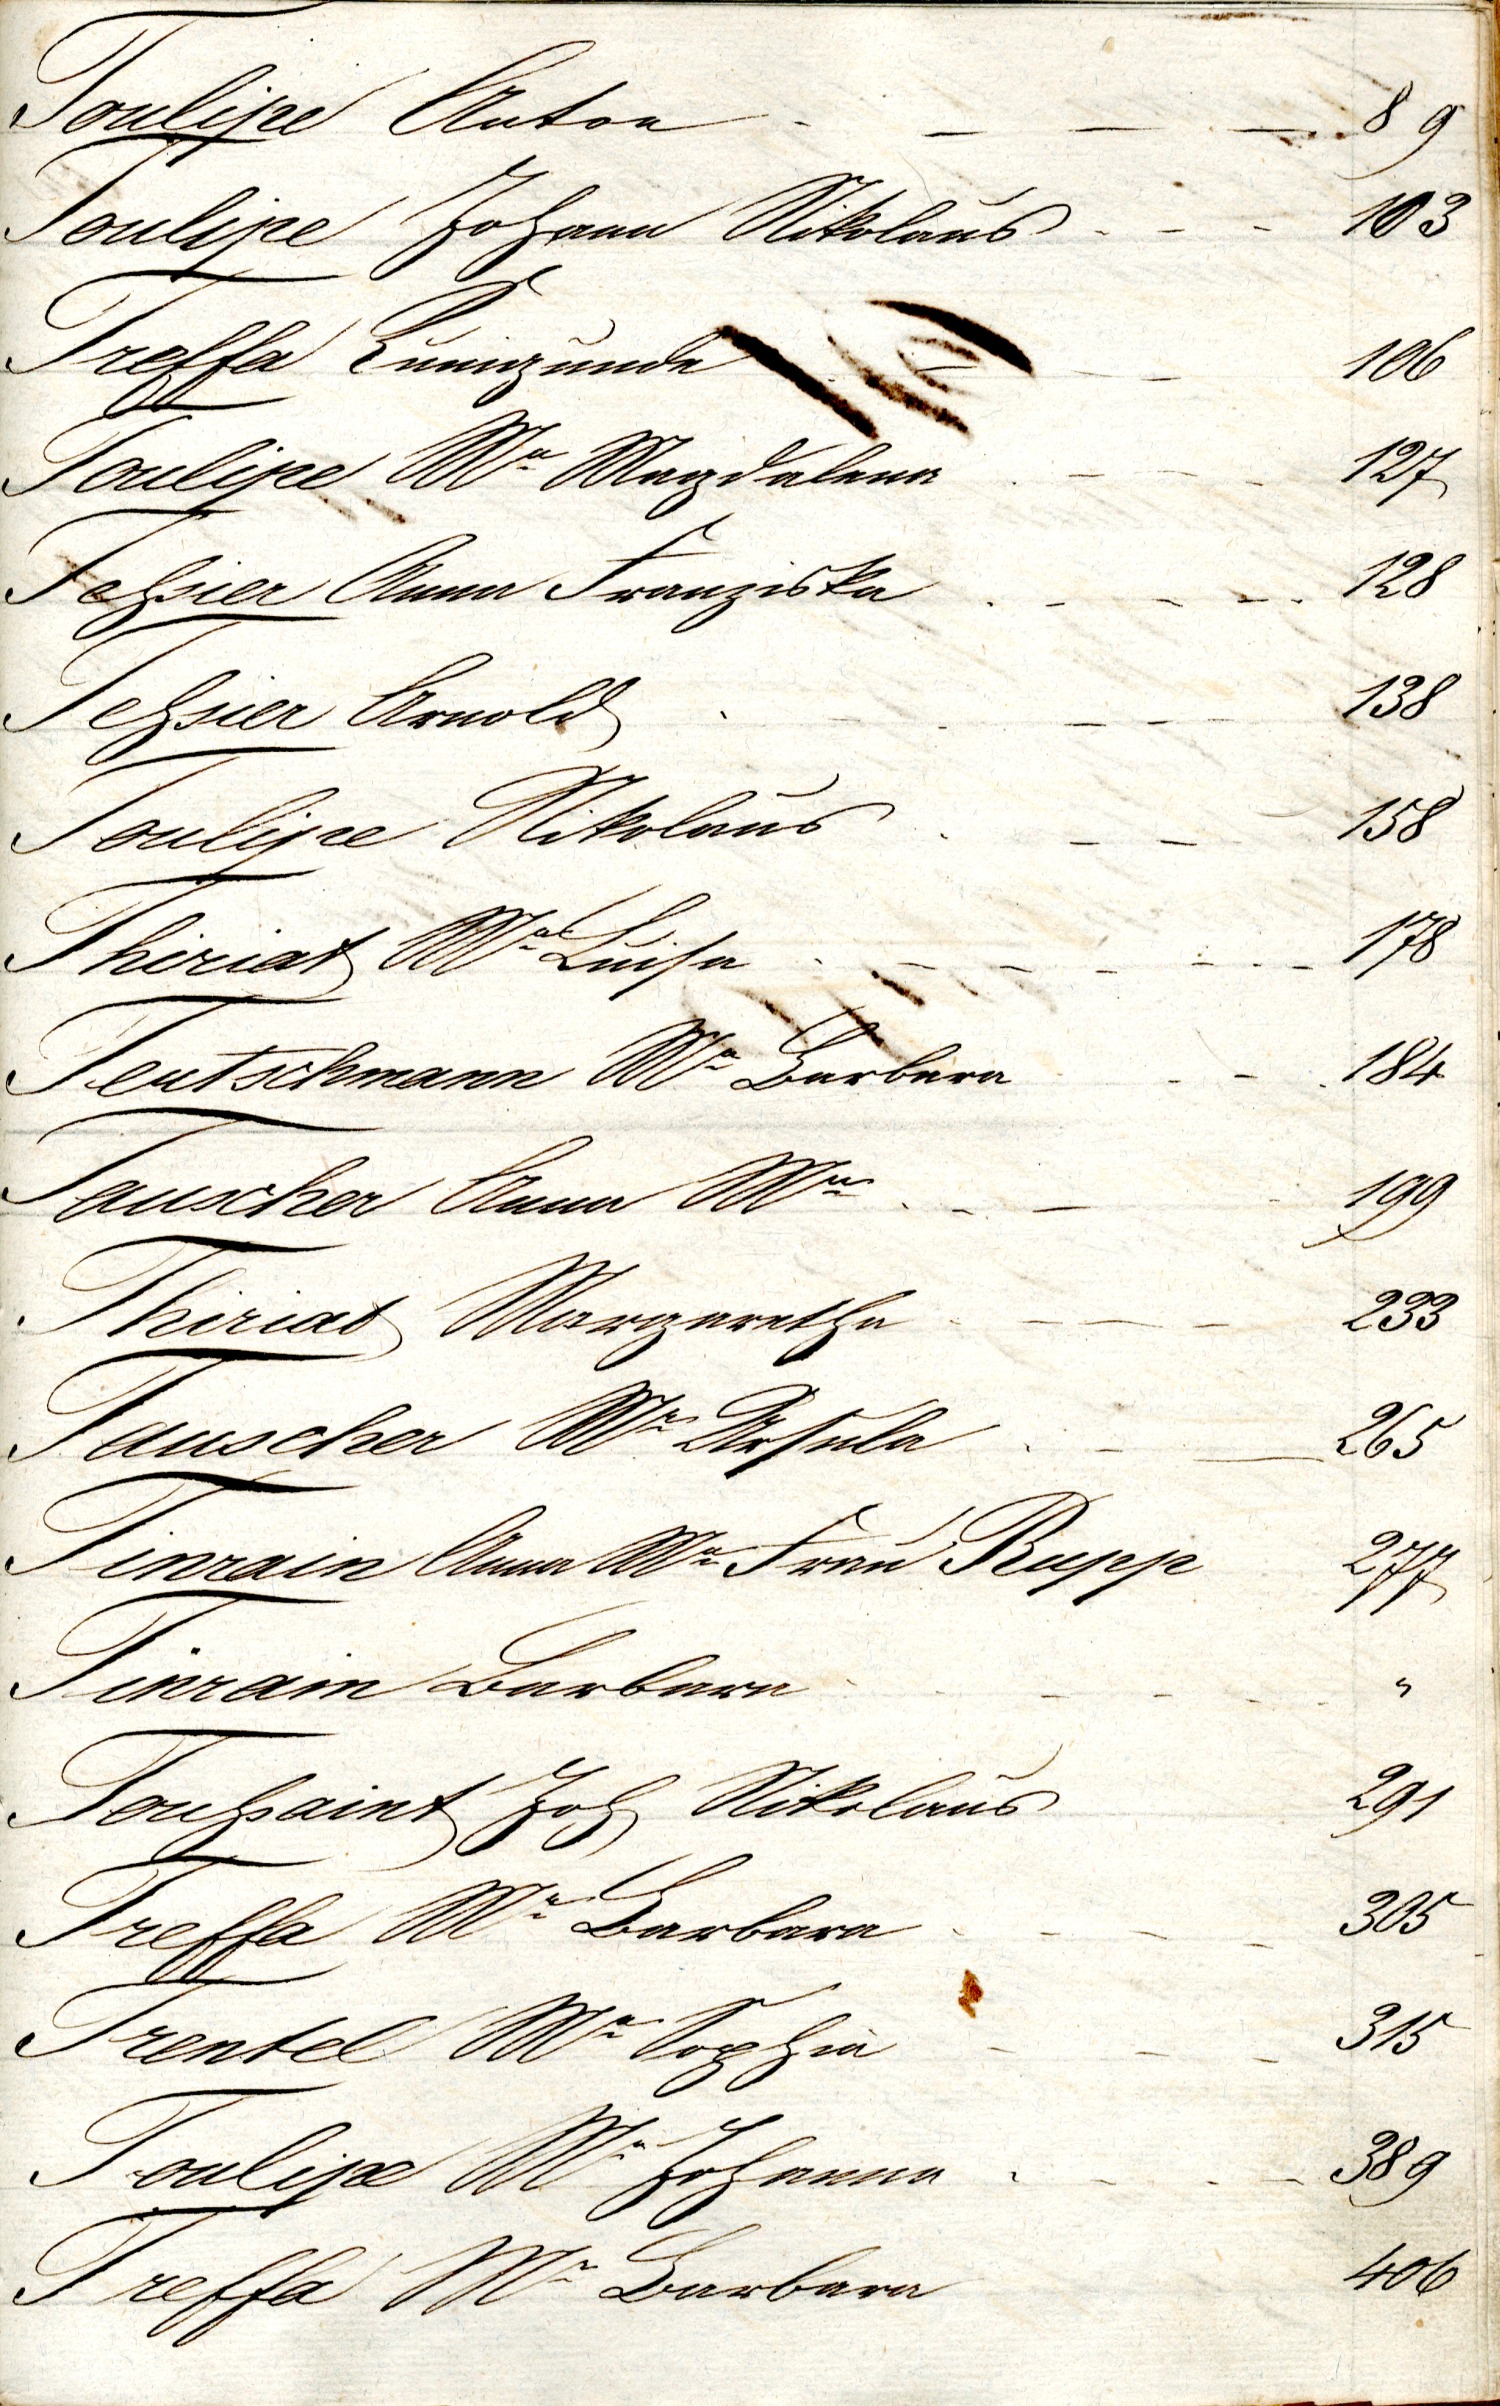 Toulipe Anton 89
Toulipe Johann Nikolaus 103
Treffa Kunigunde 106
Toulipe Ma Magdalena 127
Teßier Anna Franziska 128
Teßier Arnold 138
Toulipe Nikolaus 158
Thiriat Ma Luisa 178
Teutschmann Ma Barbara 184
Tauscher Anna Ma 199
Thiriat Margaretha 233
Tauscher Ma Ursula 265
Tinrain Anna Ma Frau Rupp 277
Tinrain Barbara "
Toußaint Joh Nikolaus 291
Treffa Ma Barbara 305
Trentel Ma Sophia 315
Toulipe Ma Johanna 389
Treffa Ma Barbara 406